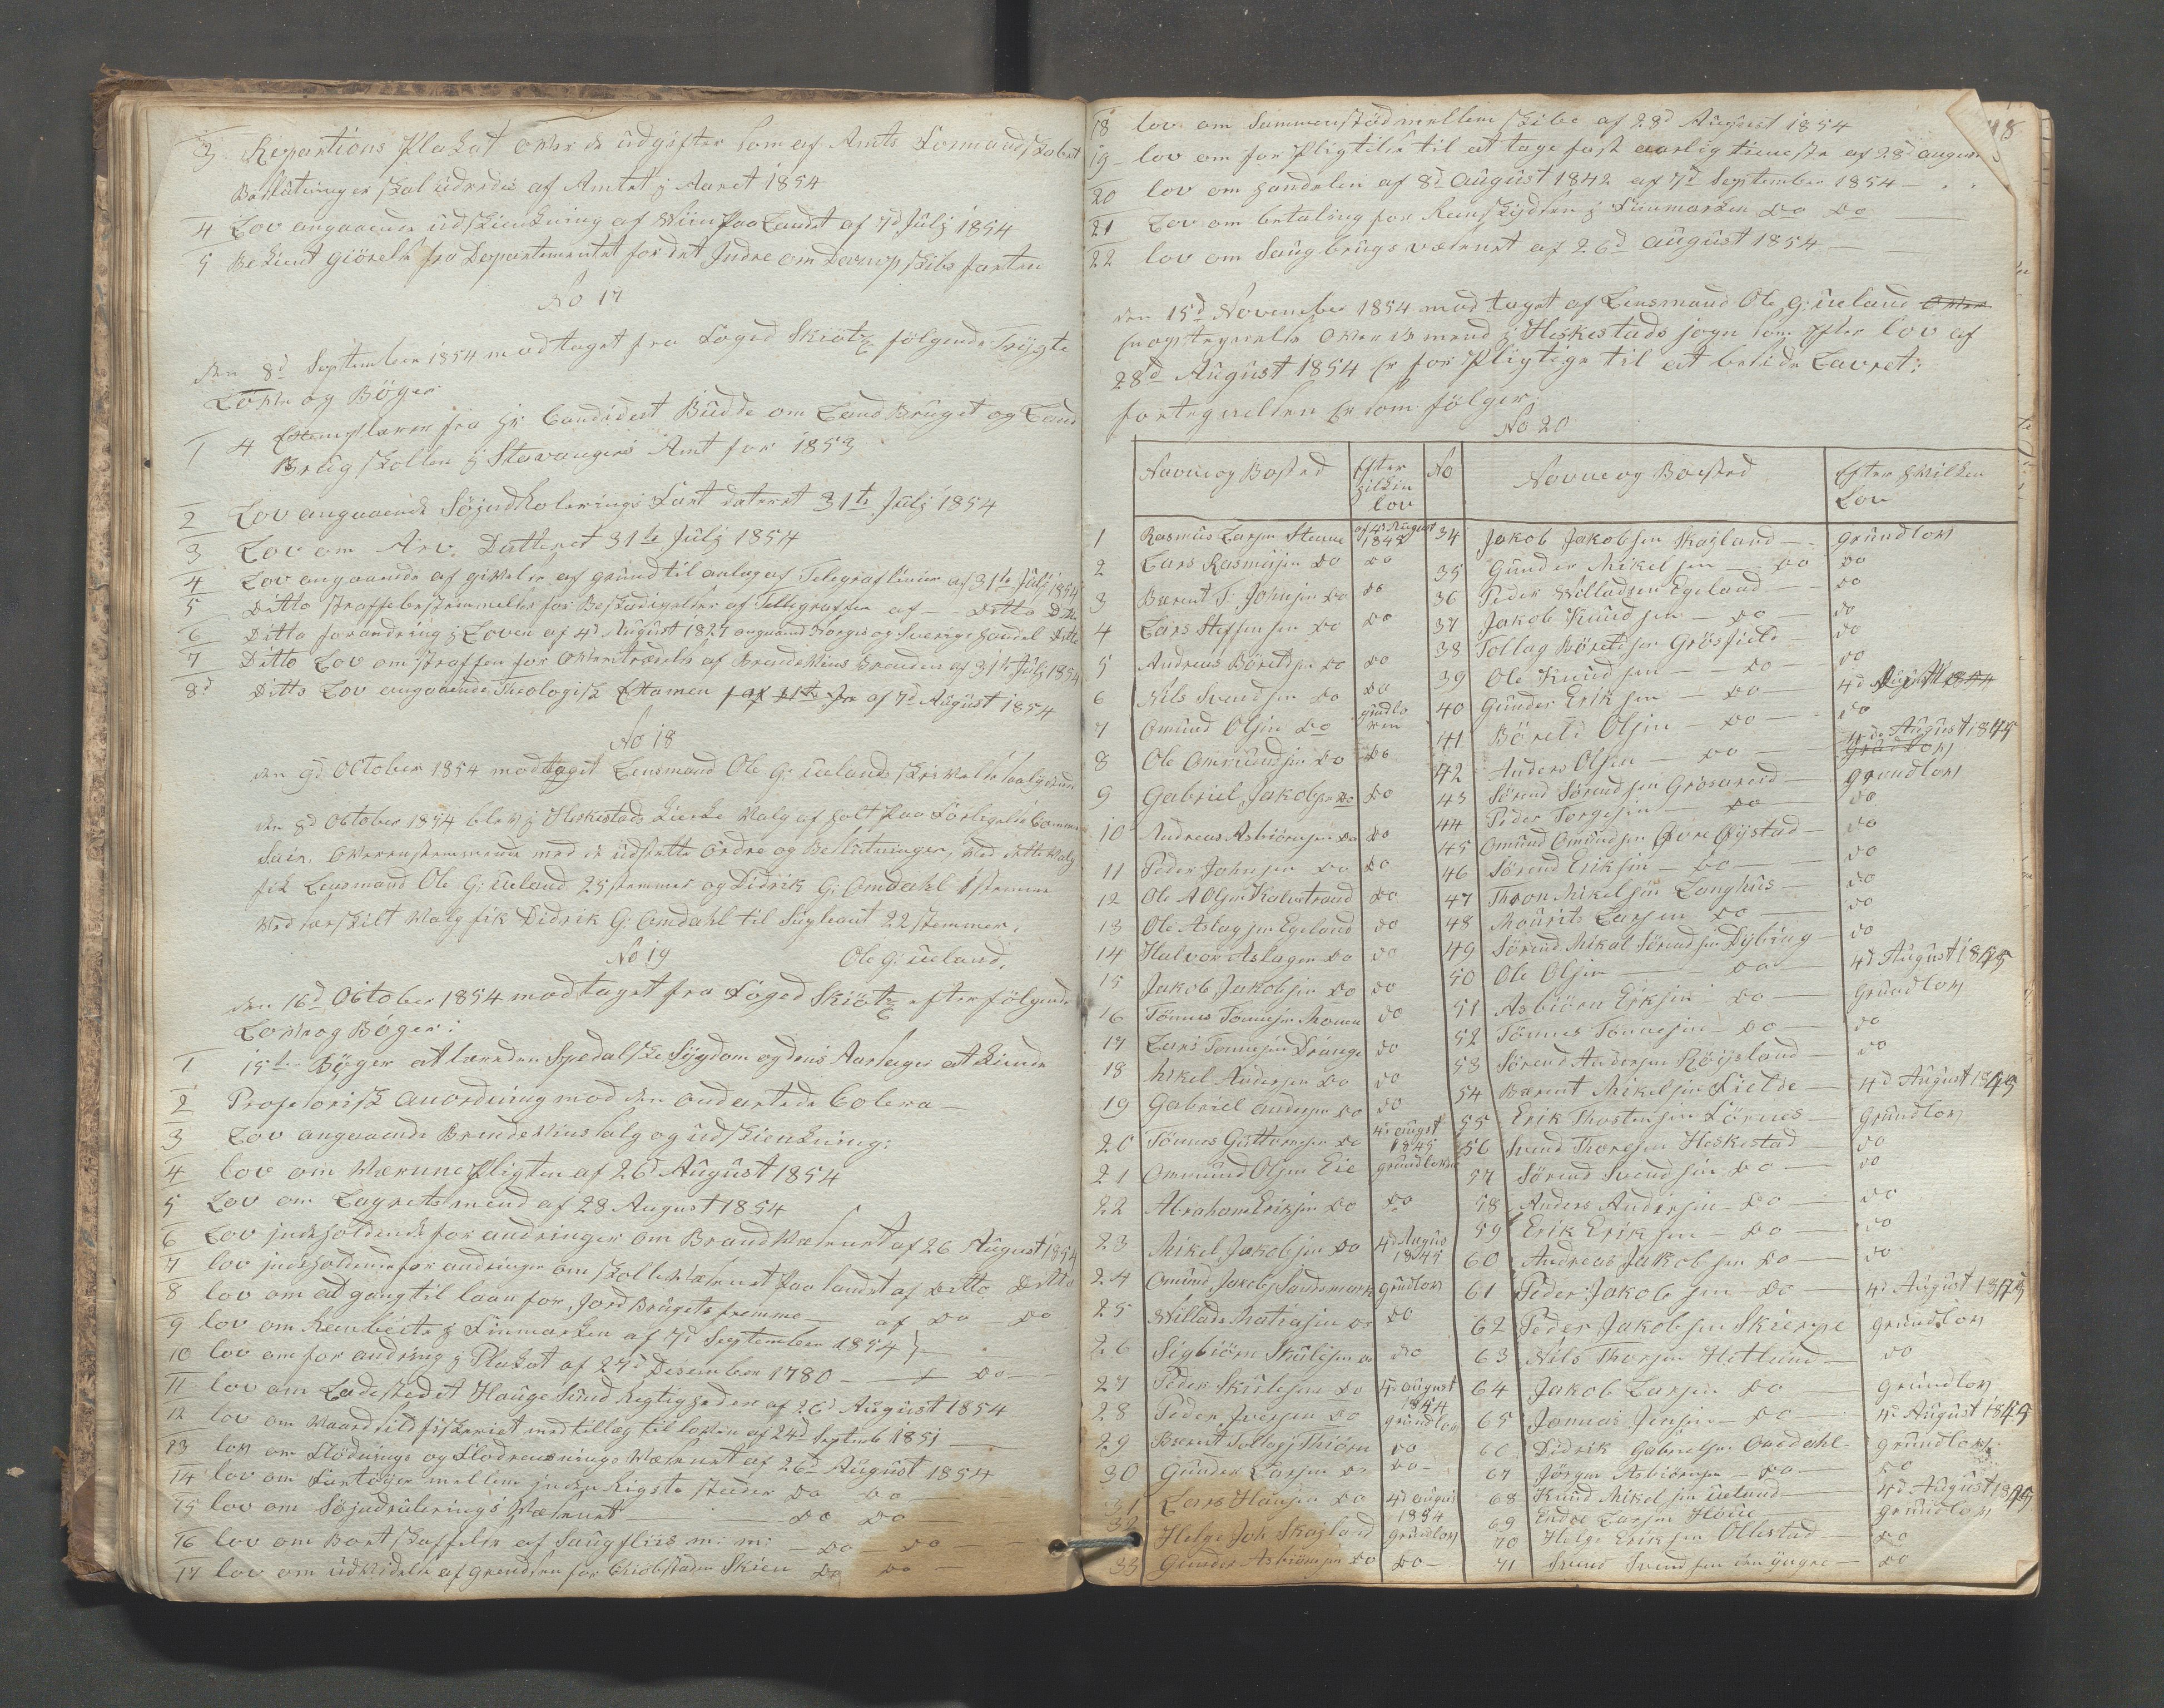 3 Repartions Plakat over de udgifter som af Amts Formandskabet
Beslutninger skal udredes af Amtet j Aaret 1854
4 Lov angaaende udskienkning af Wiin Paa Landet af 7d Julj 1854
5 Bekient giörelse fra Departementet for det Indre om Dampskibs farten
No 17
den 8d September 1854 modtaget fra Foged Skiöt fölgende Trygte
Love og Böger
1 4 Exemplarer fra Hr Candidat Budde om Land Bruget og Land
Brug skollen j Stavangers Amt for 1853
2 Lov angaaende Söjndrolerings Fart dateret 31te Julj 1854
3 Lov om Arv. Datteret 31te Julj 1854
4 Lov angaaende af givelse af grund til anlag af Telegraf linier af 31te Julj 1854
5 Ditto straffebestemmelse for Beskadigelse af Tellegraffen af - - Ditto Ditto
6 Ditto forandring j Loven af 4d August 1827 angaaend Norges og Sverigs Handel Ditto
7 Ditto Lov om straffen for overtrædelse af BrendeViins Brenden af 31te Julj 1854
8d Ditto Lov angaaende Theologisk Examen af 7d August 1854
No 18
den 9d October 1854 modtaget Lensmand Ole G: Ueland skrivelse
den 8d October 1854 blev j Heskestads Kierke Valg af holt Paa Forligelse Commi
Sair. Overenstemmende med de udsatte ordre og Beslutninger, ved dette Valg
fik Lensmand Ole G: Ueland 25 stemmer og Didrik G. Omdahl 1 stemme
Ved særskilt Valg fik Didrik G. Omdahl til Supleant 22 stemmer.
No 19 Ole G: Ueland.
den 16d October 1854 modtaget fra Foged Skiöt efterfölgende
Love og Böger:
1 15 Böger at lære den Spedalske Sygdom og dens Aarsager at Kiende
2 Profesorisk anordning mod den ondartede Colera —
3 Lov angaaende BrendeViins salg og udskienkning:
4 lov om VærnnePligten af 26d August 1854
5 Lov om Lagretsmend af 28 August 1854
6 Lov jndeholdende for andringer om BrandVæsenet af 26 August 1854
7 lov jndeholdende for andringer om skolleVæsenet Paa landet af Ditto Ditto
8 lov om ad gang til laan for Jord Brugets fremme — af Do Do
9 lov om Renbeite j Finmarken af 7d September 1854
10 lov om for andring j Plakat af 27d Desember 1780 — Do —
11 lov om Ladestedet Hauge Sund Regtigheder af 26d August 1854
12 lov om Vaarsild fiskeriet med tillæg til loven af 24d Septemb 1851
13 lov om Flödnings og Flödrensnings Væsenet af 26d August 1854
14 lov om Fartöier mellem jnden Rigste steder Do Do
15 lov om Söjndrulerings Væsenet — Do Do —
16 lov om Bort skaffelse af Saugfliis m: m: — Do Do —
17 lov om udvidelse af grendsen for Kiöbstaden Skien Do Do —
18
18 lov om Sammenstöd mellem skibe af 28d August 1854
19 lov om for Pligtelse til at tage fast aarlig tieneste af 28d august
20 lov om Handelen af 8d August 1842 af 7d September 1854 —
21 Lov om betaling for Renskydsen j Finmarken Do Do
22 lov om Saugbrugs væsenet af 26d august 1854 —
den 15d November 1854 modtaget af Lensmand Ole G: Ueland over
en optegnelse over de mend j Heskestads sogn som efter lov af
28d August 1854 er for Pligtige til at betiene Lavret:
fortegnelsen er som fölger:
No 20
Navne og Bosted | Efter hvilken lov | No | Navne og Boested | Efter hvilken Lov
1 Rasmus Larsen Steene af 4d August 1845 | 34 Jakob Jakobsen Skajland — grundlov
2 Lars Rasmusen Do Do | 35 Gunder Mikelsen — Do Do
3 Barent T. Johnsen Do Do | 36 Peder Willadsen Egeland — Do
4 Lars Steffensen Do Do | 37 Jakob Knudsen — Do — Do
5 Andreas Böretsen Do Do | 38 Tollag Böretsen Grösfield — Do
6 Nils Svendsen Do Do | 39 Ole Knudsen — Do — Do
7 Omund Olsen Do grundloven | 40 Gunder Eriksen — Do — 4d August
8 Ole Omundsen Do Do | 41 Böreld Olsen — Do — Do
9 Gabriel Jakobsen Do Do | 42 Anders Olsen — Do — 4d August 1845
10 Andreas Asbiörnsen Do Do | 43 Sörend Sörendsen Grösareid — grundlov
11 Peder Johnsen Do Do | 44 Peder Torgesen — Do — Do
12 Ole A Olsen Kalvetraad Do | 45 Omund Omundsen Övre Öystad — Do
13 Ole Aslagsen Egeland Do | 46 Sörend Eriksen — Do — Do
14 Halvor Aslagsen Do Do | 47 Thoon Mikelsen Langhus — Do
15 Jakob Jakobsen Do Do | 48 Maurits Larsen Do — Do
16 Tönnes Tönnesen Monen Do | 49 Sörend Mikal Sörendsen Dybing — Do
17 Lars Tonnesen Drange Do | 50 Ole Olsen — Do — 4d August 1845
18 Mikel Andersen Do Do | 51 Asbiörn Eriksen Do — grundlov
19 Gabriel Andersen Do Do | 52 Tönnes Tönnesen — Do — Do
20 Tönnes Guttormsen Do 4d august 1845 | 53 Sörend Andersen Röysland — Do
21 Ommund Olsen Eie grundloven | 54 Barent Mikelsen Fielde — 4d August 1845
22 Abraham Eriksen Do Do | 55 Erik Thostensen Förnes — grundlov
23 Mikel Jakobsen Do 4d August 1845 | 56 Svend Thoresen Heskestad — Do
24 Omund Jakobs Sandsmark grundlov | 57 Sörend Svendsen Do — Do
25 Willads Matiasen Do Do | 58 Anders Andersen — Do — Do
26 Sigbiörn Skulesen Do Do | 59 Erik Eriksen — Do — Do
27 Peder Skulesen Do 4d august 1854 | 60 Andreas Jakobsen Do — Do
28 Peder Iversen Do grundlov | 61 Peder Jakobsen — Do — 4d August 1845
29 Barent Tollags Thiörn Do | 62 Peder Jakobsen Skierpe grundlov
30 Gunder Larsen Do Do | 63 Nils Thorsen Hetland — Do
31 Lars Hansen Do 4d august 1854 | 64 Jakob Larsen Do — grundlov
32 Helge Joh Skajland grundlov | 65 Jonnas Jensen — Do — 4d August 1845
33 Gunder Asbiörnsen Do Do | 66 Didrik Gabrielsen Omdahl — grundlov
67 Jörgen Asbiörnsen — Do — Do
68 Knud Mikelsen Ueland — 4d August 1845
69 Endre Larsen Höiie — grundlov
70 Helge Eriksen Ollestad — Do
71 Svend Svendsen den Yngre — Do